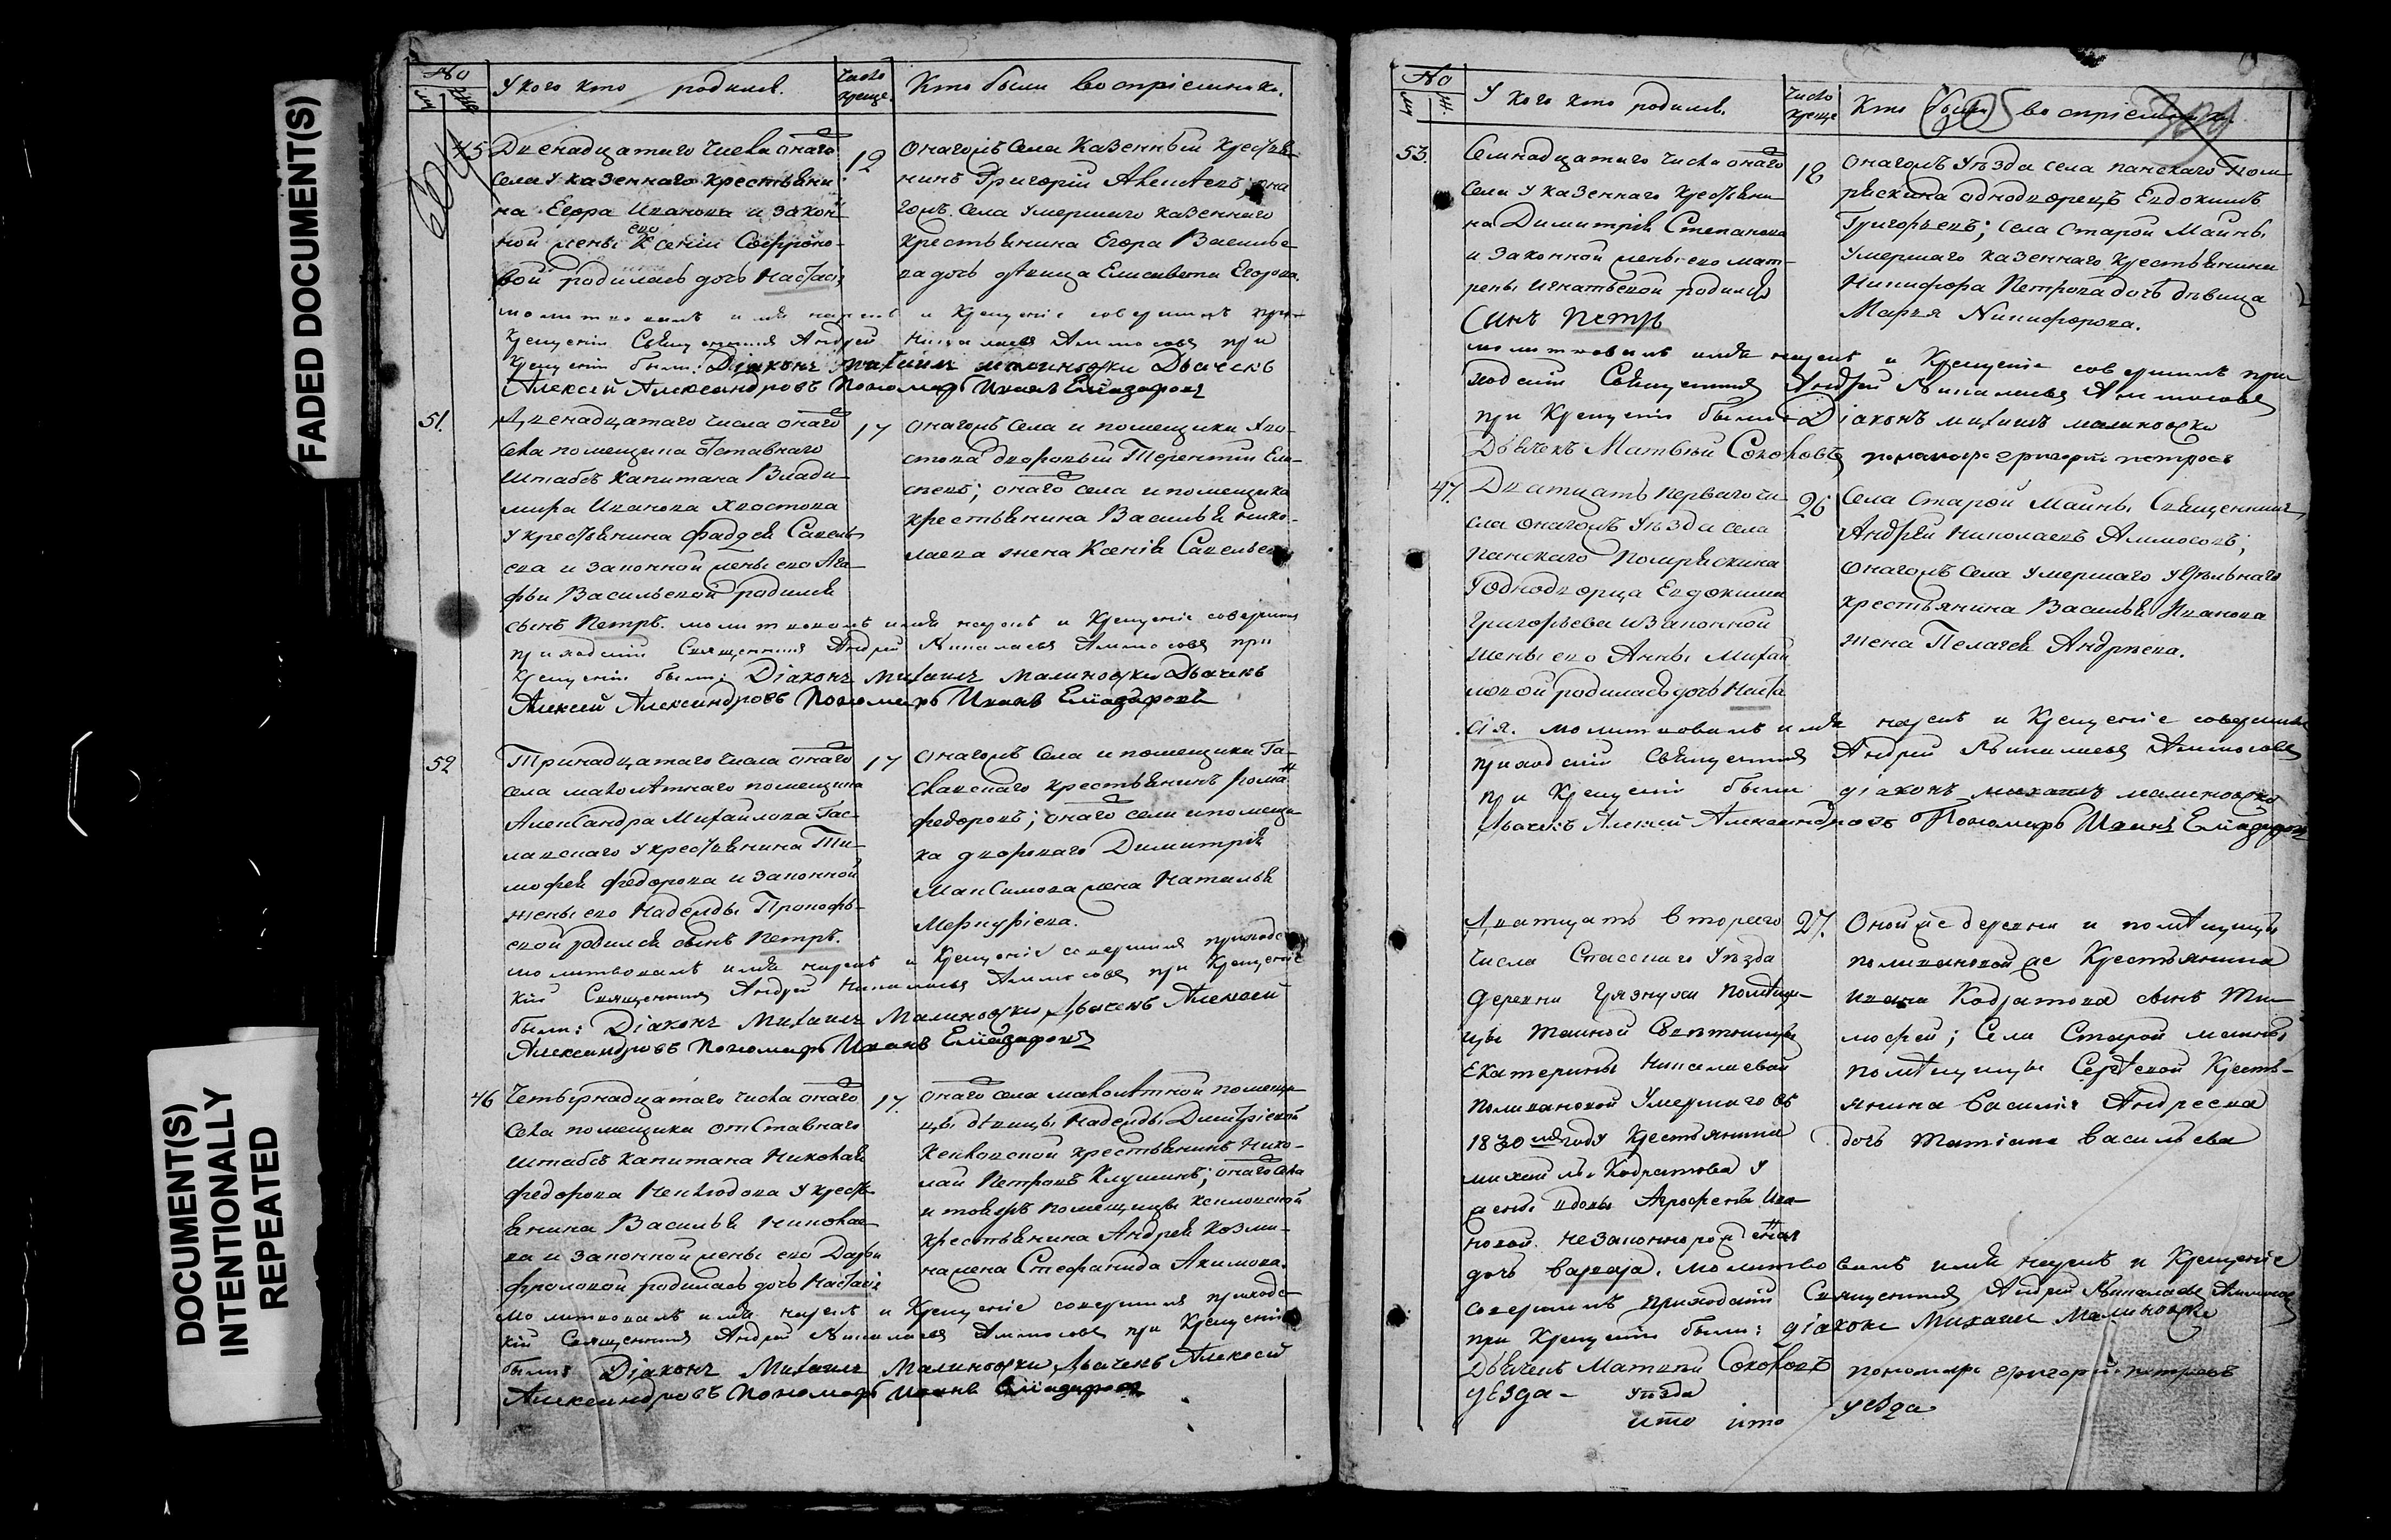 FADED DOCUMENT(S)
DOCUMENT(S)
INTENTIONALLY
REPEATED
№
У кого кто родился.
число
креще.
Кто были восприемники.
45
Двенадцатаго числа онаго
села у казеннаго крестьяни-
на Егора Иванова и закон-
ной жены его Ксении Софроно-
вой родилась дочь Настасiя
12
Онагожъ села казенный крестья-
нинъ Григорий Авдеевъ; она
гожъ села умершаго казеннаго
крестьянина Егора Василье-
ва дочь девица Елисавета Егорова.
молитвовалъ имя нарекъ и Крещенiе совершилъ при-
Священникъ Андрей Николаевъ Аммосовъ при
Крещенiи были: Дiаконъ Михаилъ Малиновскiй Дьячекъ
Алексей Александровъ Пономарь Иванъ Елiазаровъ
51.
Двенадцатаго числа онаго
села помещика отставнаго
Штабсъ Капитана Влади-
мира Иванова Хвостова
у крестьянина Фаддея Савель-
ева и законной жены его Ага-
фьи Васильевой родился
17
Онагожъ села и помещика Хво-
стова дворовый Терентий Ели-
сеевъ; онаго села и помещика
крестьянина Василья Нико-
лаева жена Ксенiя Савельева
сынъ Петръ. молитвовалъ имя нарекъ и Крещенiе совершилъ
приходскiй Священникъ Андрей Николаевъ Аммосовъ при
Крещенiи были: Дiаконъ Михаилъ Малиновскiй Дьячекъ
Алексей Александровъ Пономарь Иванъ Елiазаровъ
52
Тринадцатаго числа онаго
села малолѣтнаго помещика
Александра Михайлова Гас-
лавскаго у крестьянина Ти-
мофея Федорова и законной
жены его Надежды Прокофь-
евой родился сынъ Петръ.
17
Онагожъ села и помещика Га-
славскаго крестьянинъ Романъ
Федоровъ; онаго села и помещи-
ка двороваго Димитрiя
Максимова жена Наталья
молитвовалъ имя нарекъ и Крещенiе совершилъ приходс-
кiй Священникъ Андрей Николаевъ Аммосовъ при Крещенiе
были: Дiаконъ Михаилъ Малиновскiй Дьячекъ Алексей
Александровъ Пономарь Иванъ Елiазаровъ
46
Четырнадцатаго числа онаго
села помещика отставнаго
штабсъ капитана Николая
Федорова Неклюдова у кресть-
янина Василья Николае-
ва и законной жены его Дарьи
Фроловой родилась дочь Настасiя
17.
онаго села малолѣтной помещи-
цы дѣвицы Надежды Димитрiевой
крестьянинъ Нико-
лай Петровъ Клушинъ; онаго села
и тояжъ помещицы
крестьянина Андрея Козми-
на жена Стефанида Акимова.
молитвовалъ имя нарекъ и Крещенiе совершилъ приходс-
кiй Священникъ Андрей Николаевъ Аммосовъ при Крещенiи
были: Дiаконъ Михаилъ Малиновскiй Дьячекъ Алексей
Александровъ Пономарь Иванъ Елiазаровъ
№
У кого кто родился.
число
креще
Кто были восприемники.
53.
Семнадцатаго числа онаго
села у казеннаго крестьяни-
на Димитрiя Степанова
и законной жены его Мат-
рены Игнатьевой родился
сынъ Петръ
18
Онагожъ уѣзда села Панскаго Пом-
ряскина однодворецъ Евдокимъ
Григорьевъ; села Старой Майны
умершаго казеннаго крестьянина
Никифора Петрова дочь дѣвица
Марья Никифорова.
молитвовалъ имя нарекъ и Крещенiе совершилъ при-
ходскiй Священникъ Андрей Николаевъ Аммосовъ
при Крещенiи были: Дiаконъ Михаилъ Малиновскiй
Дьячекъ Матвѣй Соколовъ, пономарь Григорiй Петровъ
47.
Дватцать перваго чи-
сла онагожъ уѣзда села
Панскаго Помряскина
у однодворца Евдокима
Григорьева и законной
жены его Анны Михай-
ловой родилась дочь Наста
26
Села Старой Майны Священникъ
Андрей Николаевъ Аммосовъ;
онагожъ села умершаго удѣльнаго
крестьянина Василья Иванова
жена Пелагея Андреева.
сiя. молитвовалъ имя нарекъ и Крещенiе совершилъ
приходскiй Священникъ Андрей Николаевъ Аммосовъ
при Крещенiи были дiаконъ Михаилъ Малиновскiй
Дьячекъ Алексей Александровъ Пономарь Иванъ Елiазаровъ
Дватцать втораго
числа Спасскаго Уѣзда
деревни Грязнухи помѣщи-
цы тайной Совѣтницы
Екатерины Николаевой
Поливановой умершаго въ
1830мъ году Крестьянина
Михайлы Кодратова у
жены вдовы Агрофены Ива-
новой незаконнорожденная
дочь Варвара. молитвовалъ имя нарекъ и Крещенiе
27.
Оной же деревни и помѣщицы
Поливановой же Крестьянина
Ивана Кодратова сынъ Ти-
мофей; Села Старой Майны
помѣщицы Крестъ-
янина Василiя Андреева
дочь Татiана Васильева
совершилъ приходскiй Священникъ Андрей Николаевъ Аммосовъ
при Крещенiи были: дiаконъ Михаилъ Малиновскiй
Дьячекъ Матвѣй Соколовъ пономарь Григорiй Петровъ
уѣзда - уѣзда уѣзда
что что